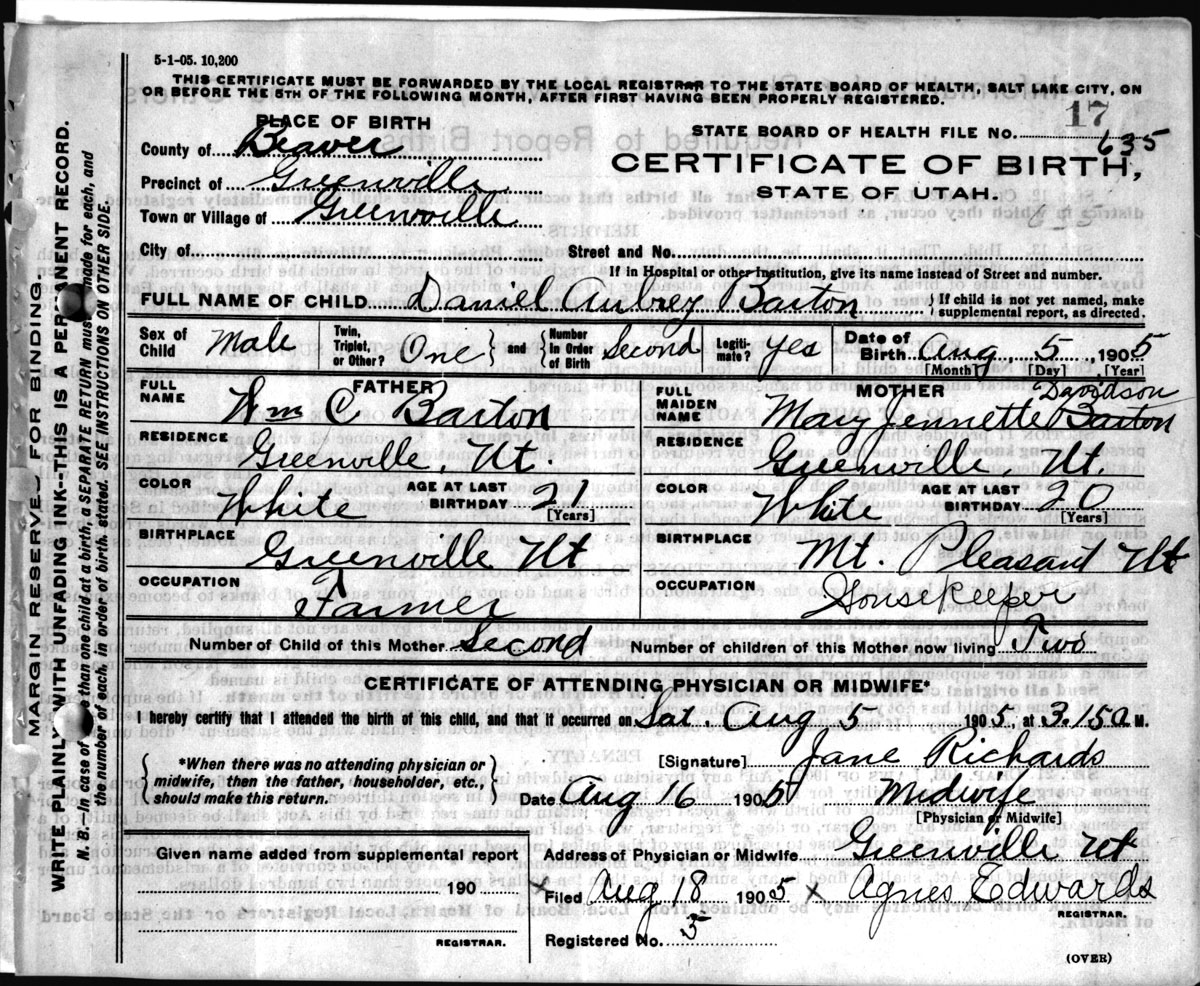 5-1-05. 10,200
THIS CERTIFICATE MUST BE FORWARDED BY THE LOCAL REGISTRAR TO THE STATE BOARD OF HEALTH, SALT LAKE CITY, ON
OR BEFORE THE 5TH OF THE FOLLOWING MONTH, AFTER FIRST HAVING BEEN PROPERLY REGISTERED.
PLACE OF BIRTH
County of Beaver
Precinct of Greenville
Town or Village of Greenville
17
STATE BOARD OF HEALTH FILE NO. 635
CERTIFICATE OF BIRTH,
STATE OF UTAH.
635
City of Street and No.
If in Hospital or other Institution, give its name instead of Street and number.
FULL NAME OF CHILD Daniel Aubrey Barton { If child is not yet named, make
supplemental report, as directed.
Sex of Child Male Twin, Triplet, or Other? One } and { Number in Order of Birth Second Legiti-mate? yes Date of Birth Aug, 5, 1905
[Month] [Day] [Year]
FULL NAME FATHER Wm C Barton
RESIDENCE Greenville, Ut.
COLOR White AGE AT LAST BIRTHDAY 21 [Years]
BIRTHPLACE Greenville Ut
OCCUPATION Farmer
FULL MAIDEN NAME MOTHER Mary Jennette Davidson Barton
RESIDENCE Greenville Ut.
COLOR White AGE AT LAST BIRTHDAY 20 [Years]
BIRTHPLACE Mt. Pleasant Ut
OCCUPATION House Keeper
Number of Child of this Mother Second Number of children of this Mother now living Two
CERTIFICATE OF ATTENDING PHYSICIAN OR MIDWIFE*
I hereby certify that I attended the birth of this child, and that it occurred on Sat. Aug 5 1905, at 3.15 a M.
{ *When there was no attending physician or
midwife, then the father, householder, etc.,
should make this return. }
[Signature] Jane Richards
Date Aug 16 1905 Midwife
[Physician or Midwife]
Given name added from supplemental report
190
REGISTRAR.
Address of Physician or Midwife Greenville Ut
x Filed Aug 18 1905 x Agnes Edwards
REGISTRAR.
Registered No. 5
(OVER)
MARGIN RESERVED FOR BINDING.
WRITE PLAINLY WITH UNFADING INK--THIS IS A PERMANENT RECORD.
N. B.--In case of more than one child at a birth, a SEPARATE RETURN must be made for each, and
the number of each, in order of birth, stated. SEE INSTRUCTIONS ON OTHER SIDE.